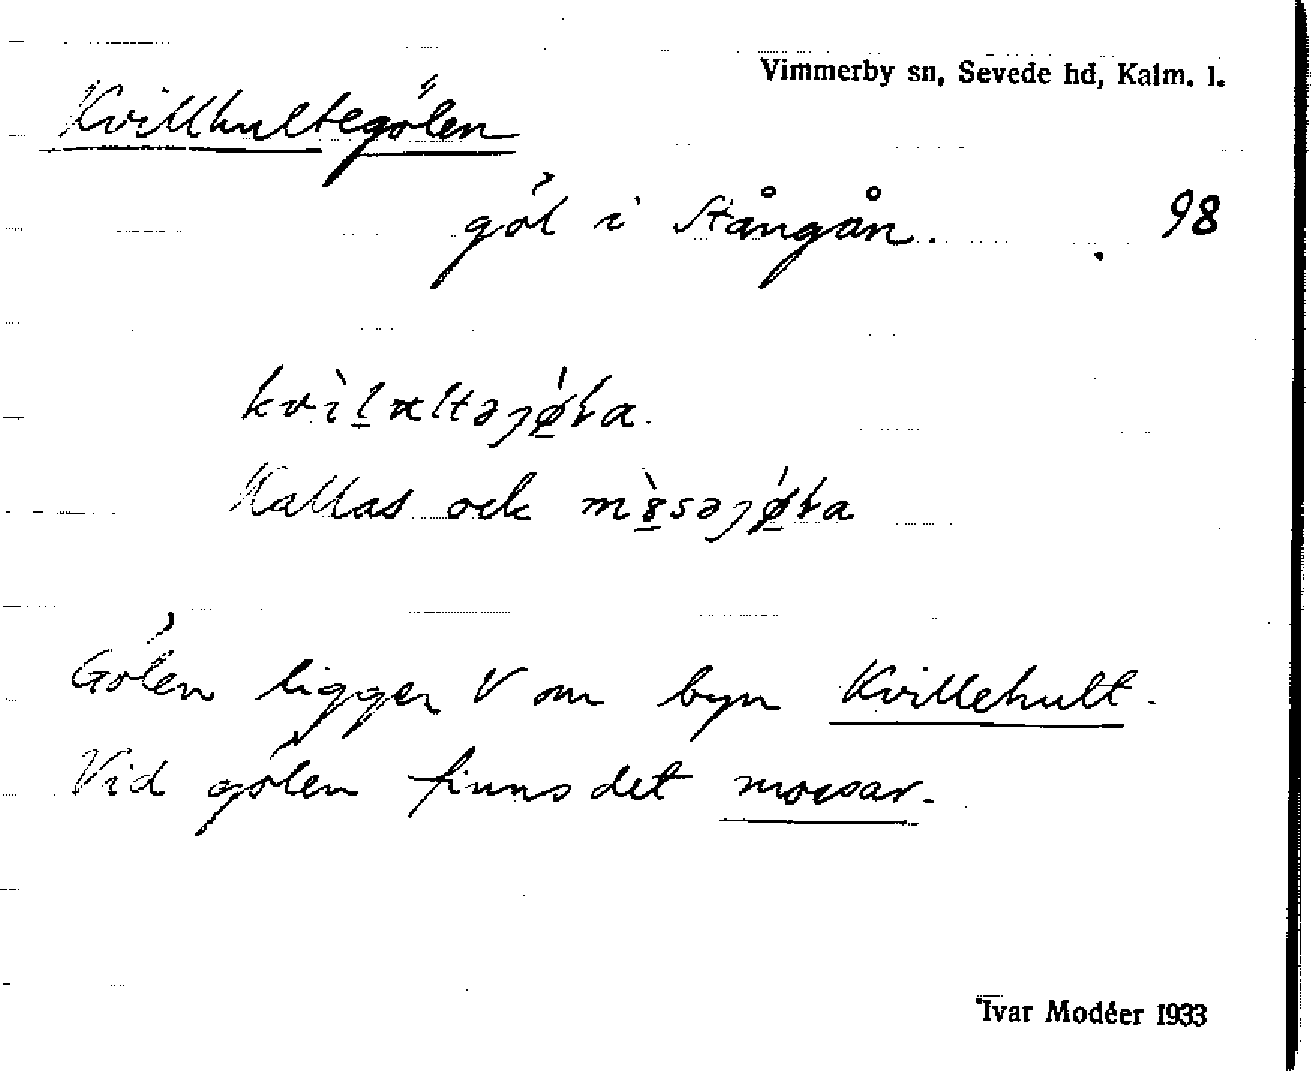 Vimmerby sn, Sevede hd, Kalm. l.
Kvillhultegölen
göl i Stångån. 98
kvìl̠æltəȷǿ̠ɫa.
Kallas ock mɤ̠̀səȷǿ̠ɫa
Gölen ligger V om byn Kvillehult.
Vid gölen finns det mossar.
Ivar Modéer 1933